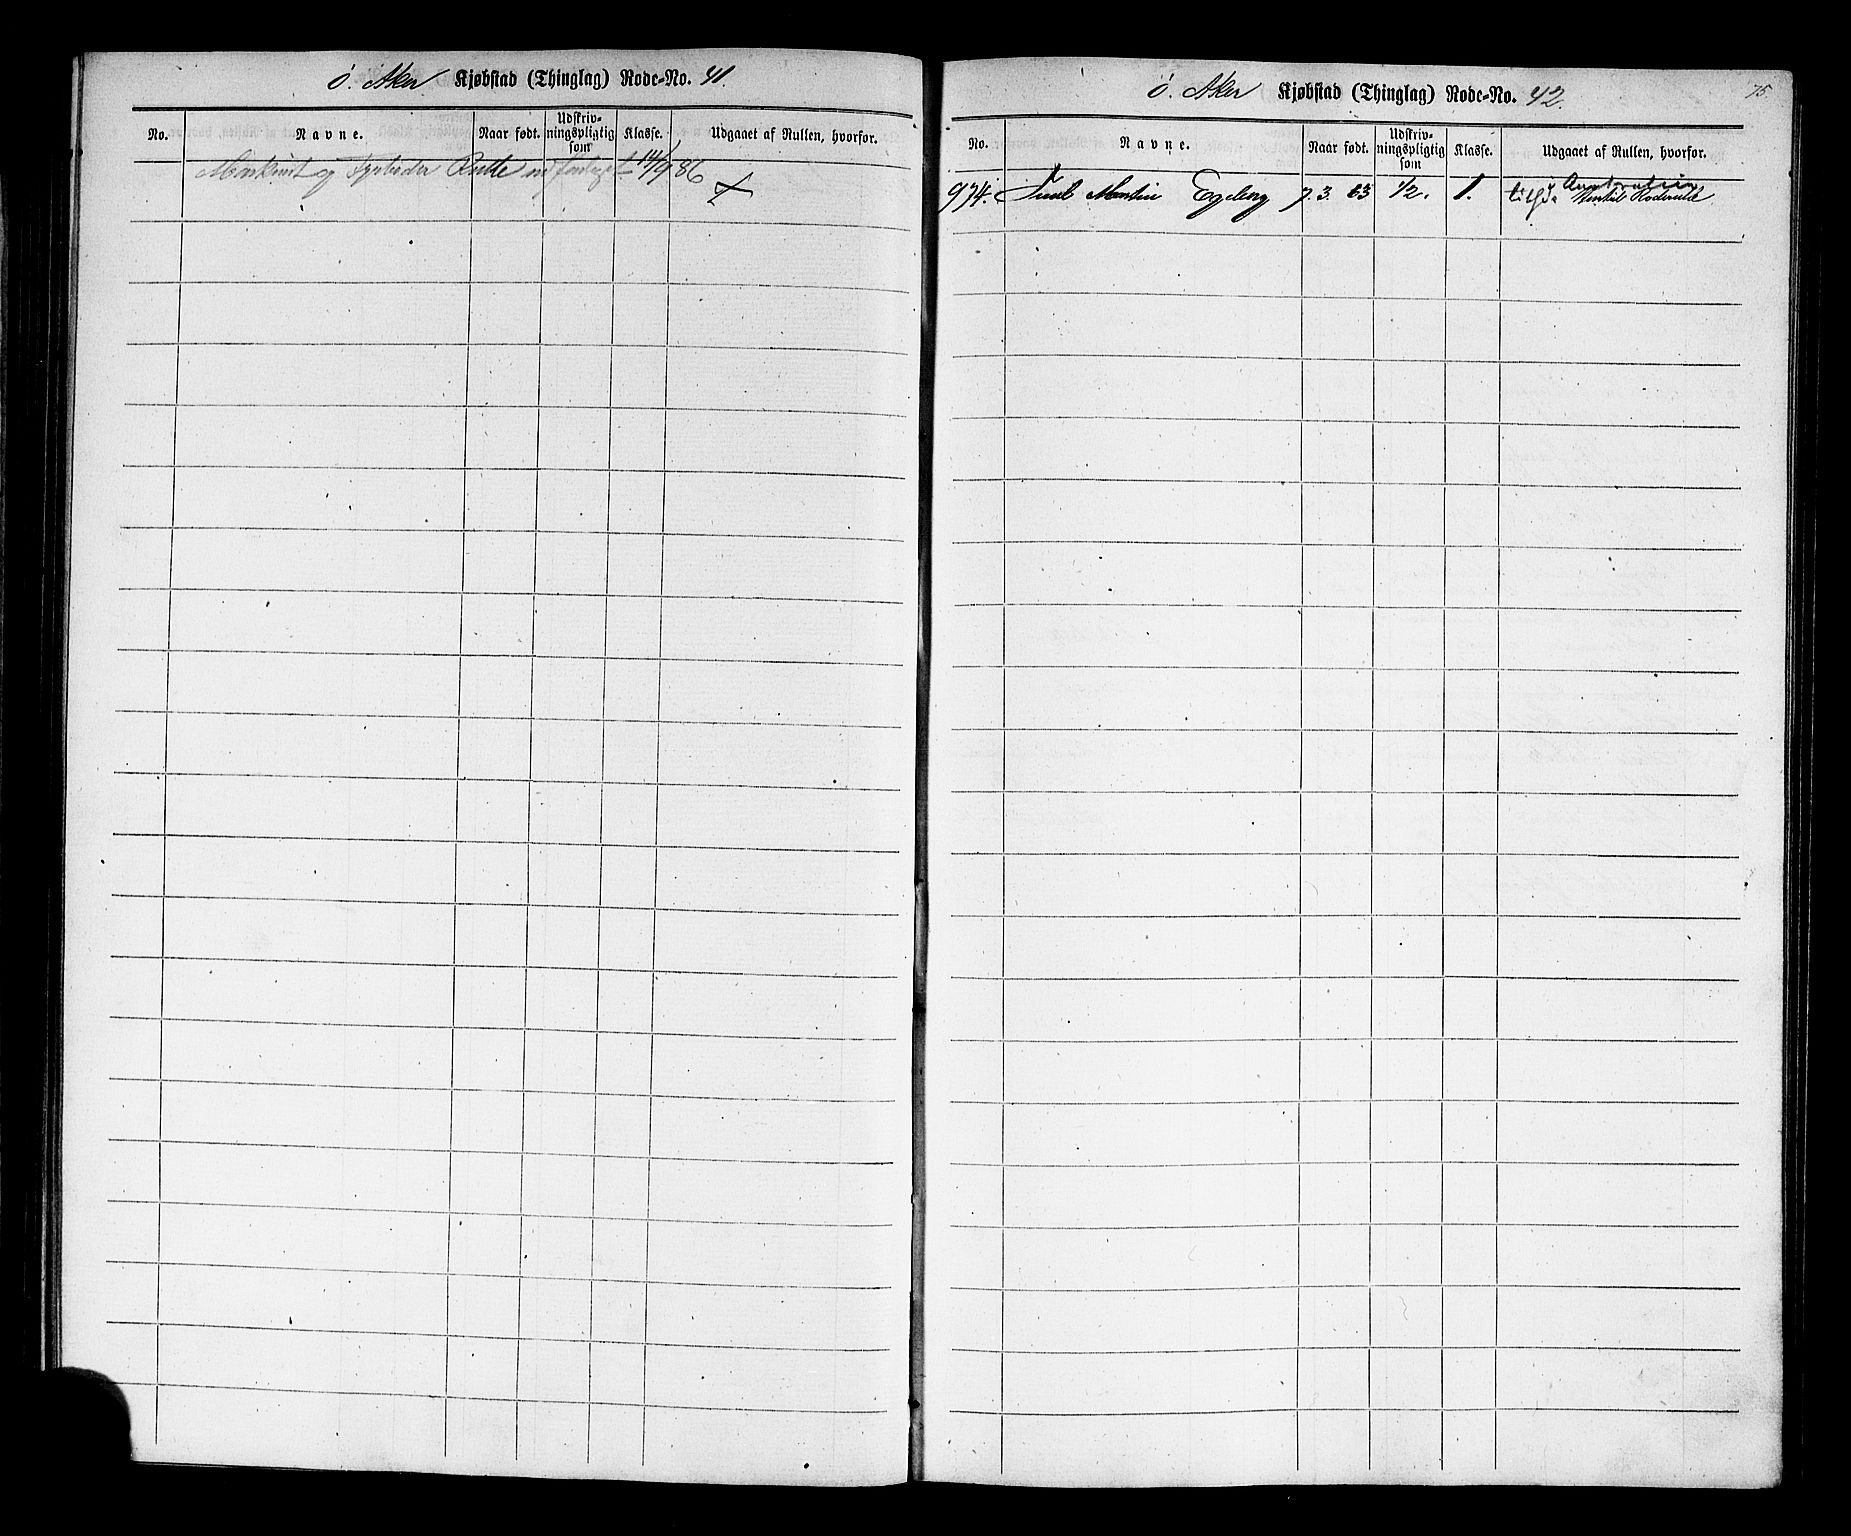 Ö. Aker Kjøbstad (Thinglag) Rode-No. 41.
No. Navne. Naar født. Udskriv-ningspligtig som Klasse. Udgaaet af Rullen, hvorfor.
og Rulle 14/9 86
Ö. Aker Kjøbstad (Thinglag) Rode-No. 42.
75
No. Navne. Naar født. Udskriv-ningspligtig som Klasse. Udgaaet af Rullen, hvorfor.
Australien
974. Martin Egeberg 7. 3. 63 1/2. 1.